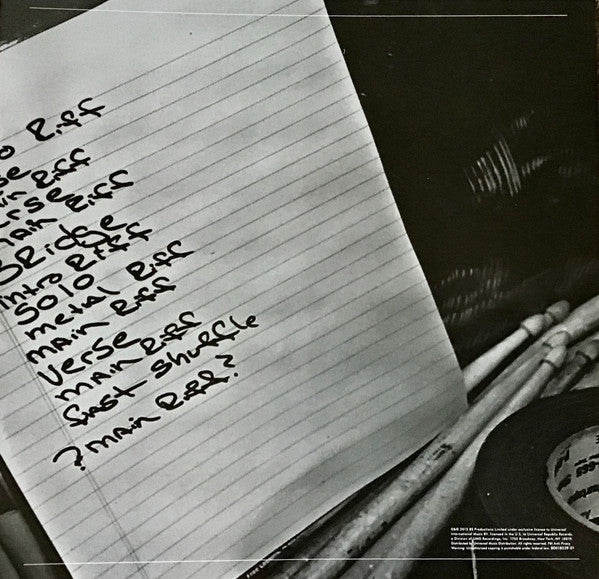 o Riff
se
in Riff
erse
main Riff
Bridge
intro Riff
Solo
metal Riff
main Riff
Verse
main Riff
fast shuffle
? main Riff?
℗&© 2013 BS Productions Limited under exclusive license to Universal
International Music BV. Licensed in the U.S. to Universal Republic Records,
a Division of UMG Recordings, Inc. 1755 Broadway, New York, NY 10019.
Distributed by Universal Music Distribution. All rights reserved. FBI Anti-Piracy
Warning: Unauthorized copying is punishable under federal law. B0018539-01